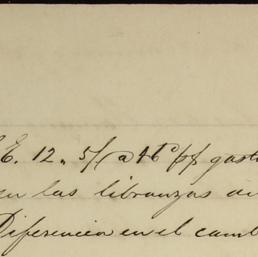 E. 12. 5/ a 46 p% gast
en las libranzas de
Diferencia en el camb